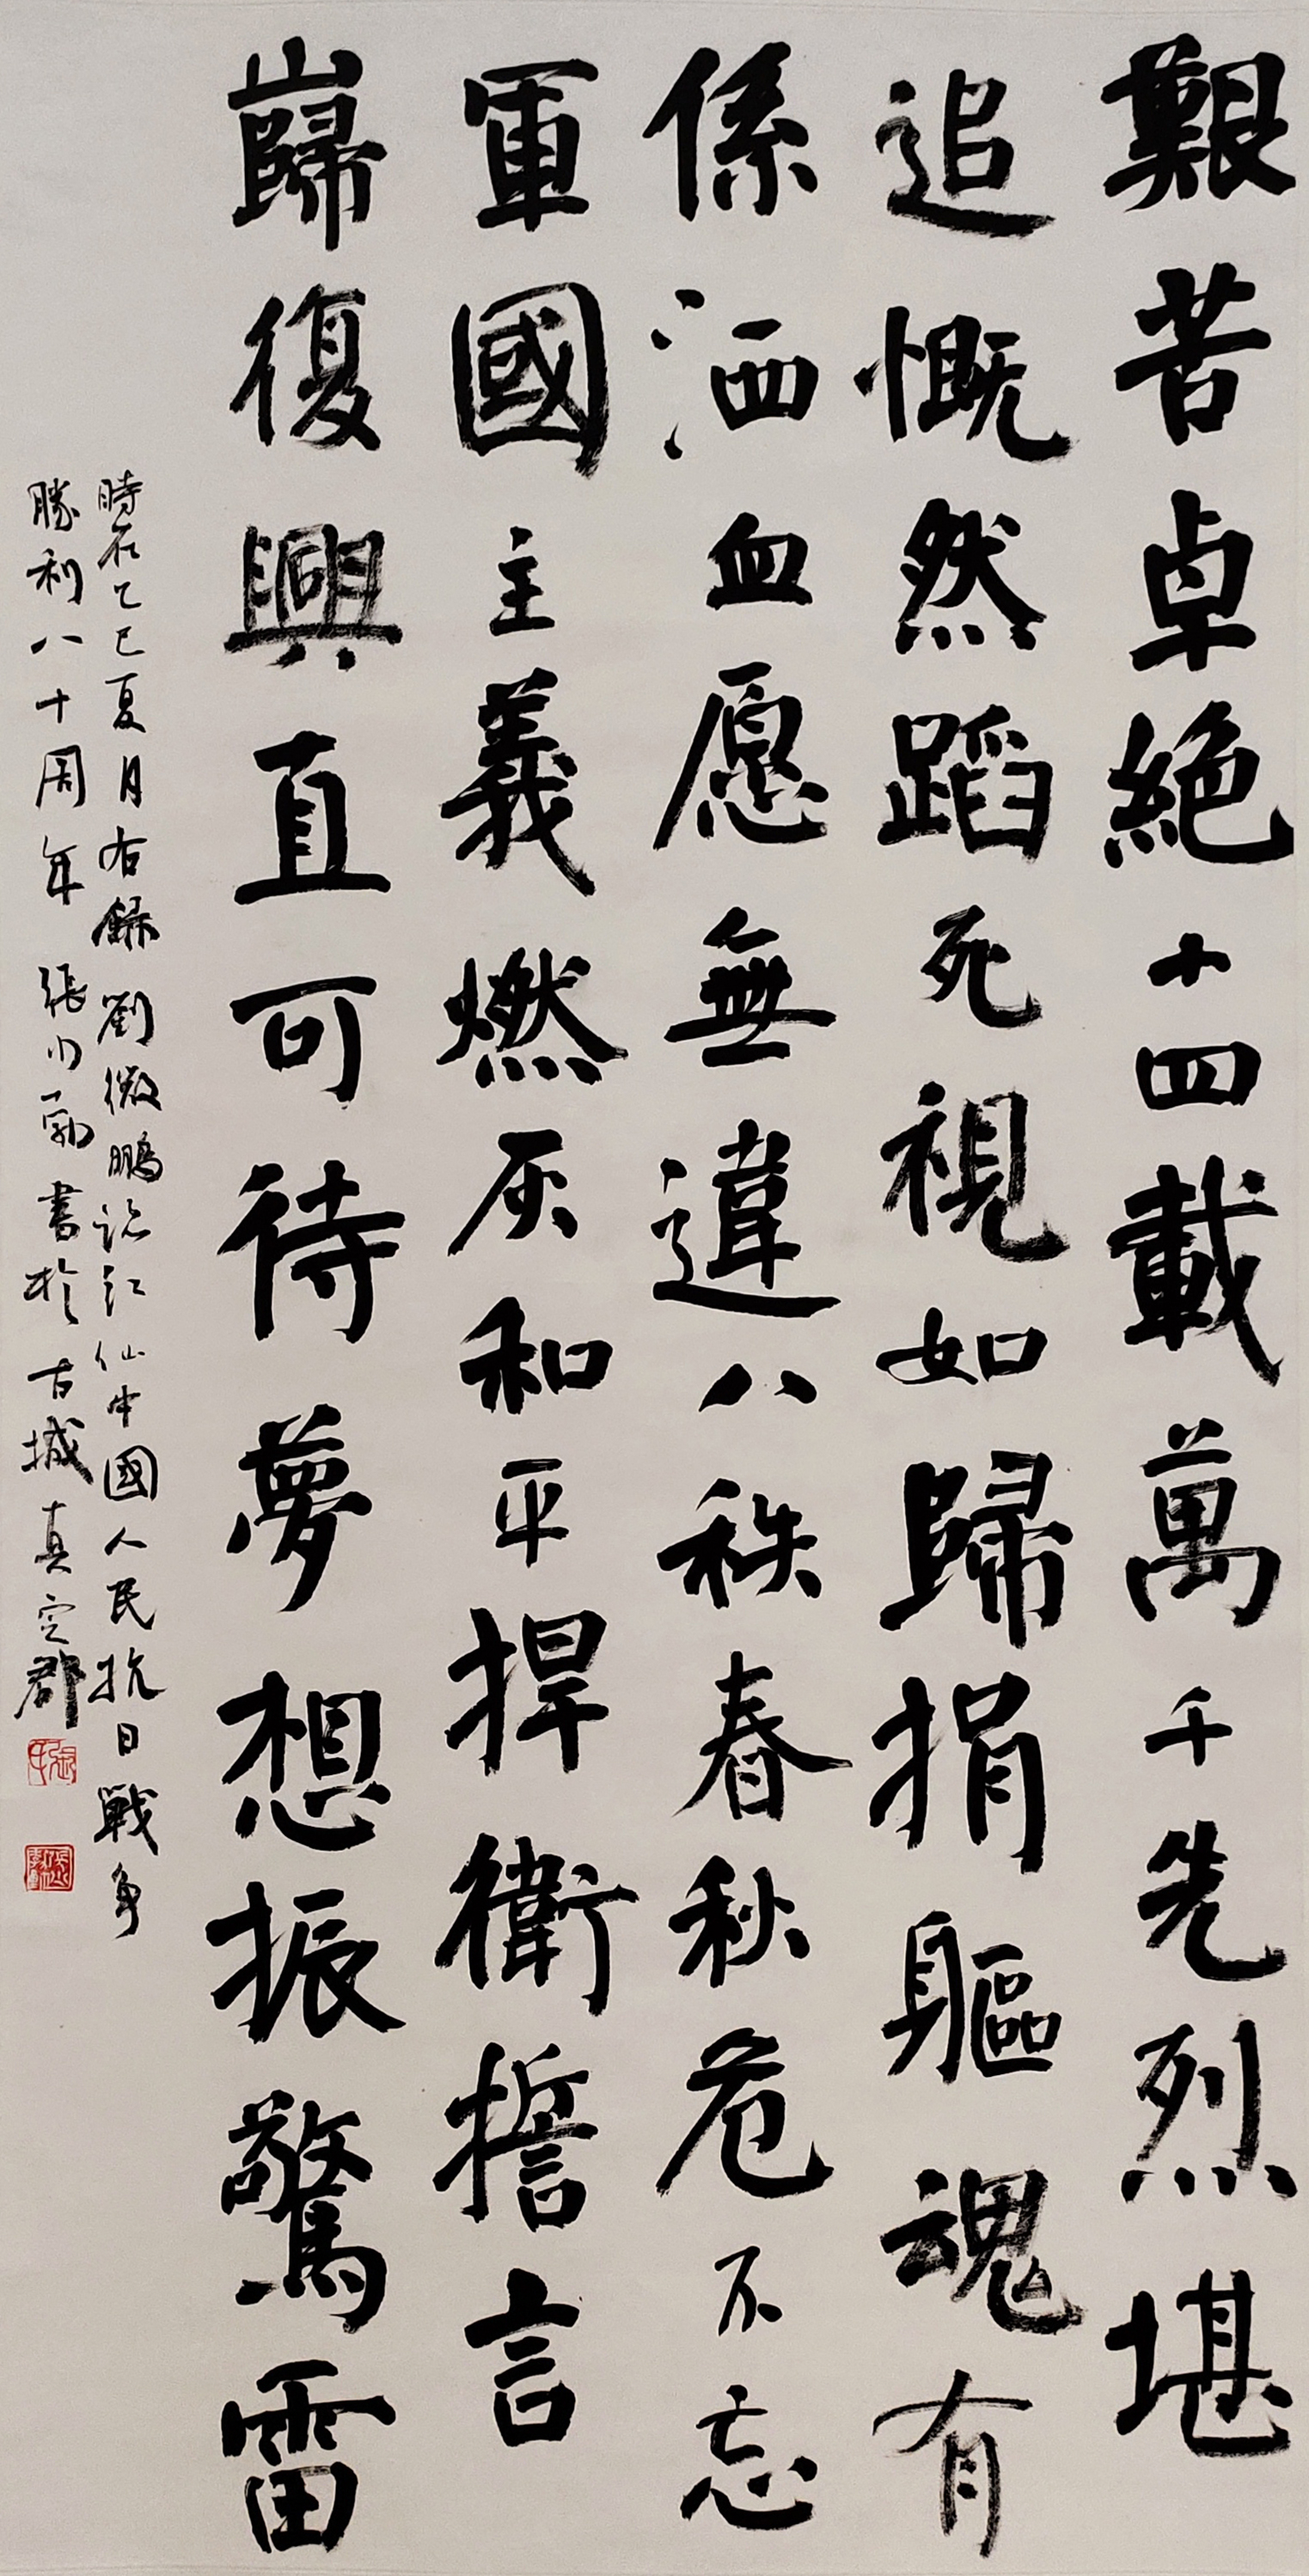 艱苦卓絕十四載萬千先烈堪
追慨然蹈死視如歸捐軀魂有
係洒血愿無違八秩春秋危不忘
軍國主義燃灰和平捍衛擔言
巋復興直可待夢想振驚雷
時在乙巳夏月右錄劉微鵬詞臨江仙中國人民抗日戰爭
勝利八十周年張小勇書於古城真定郡